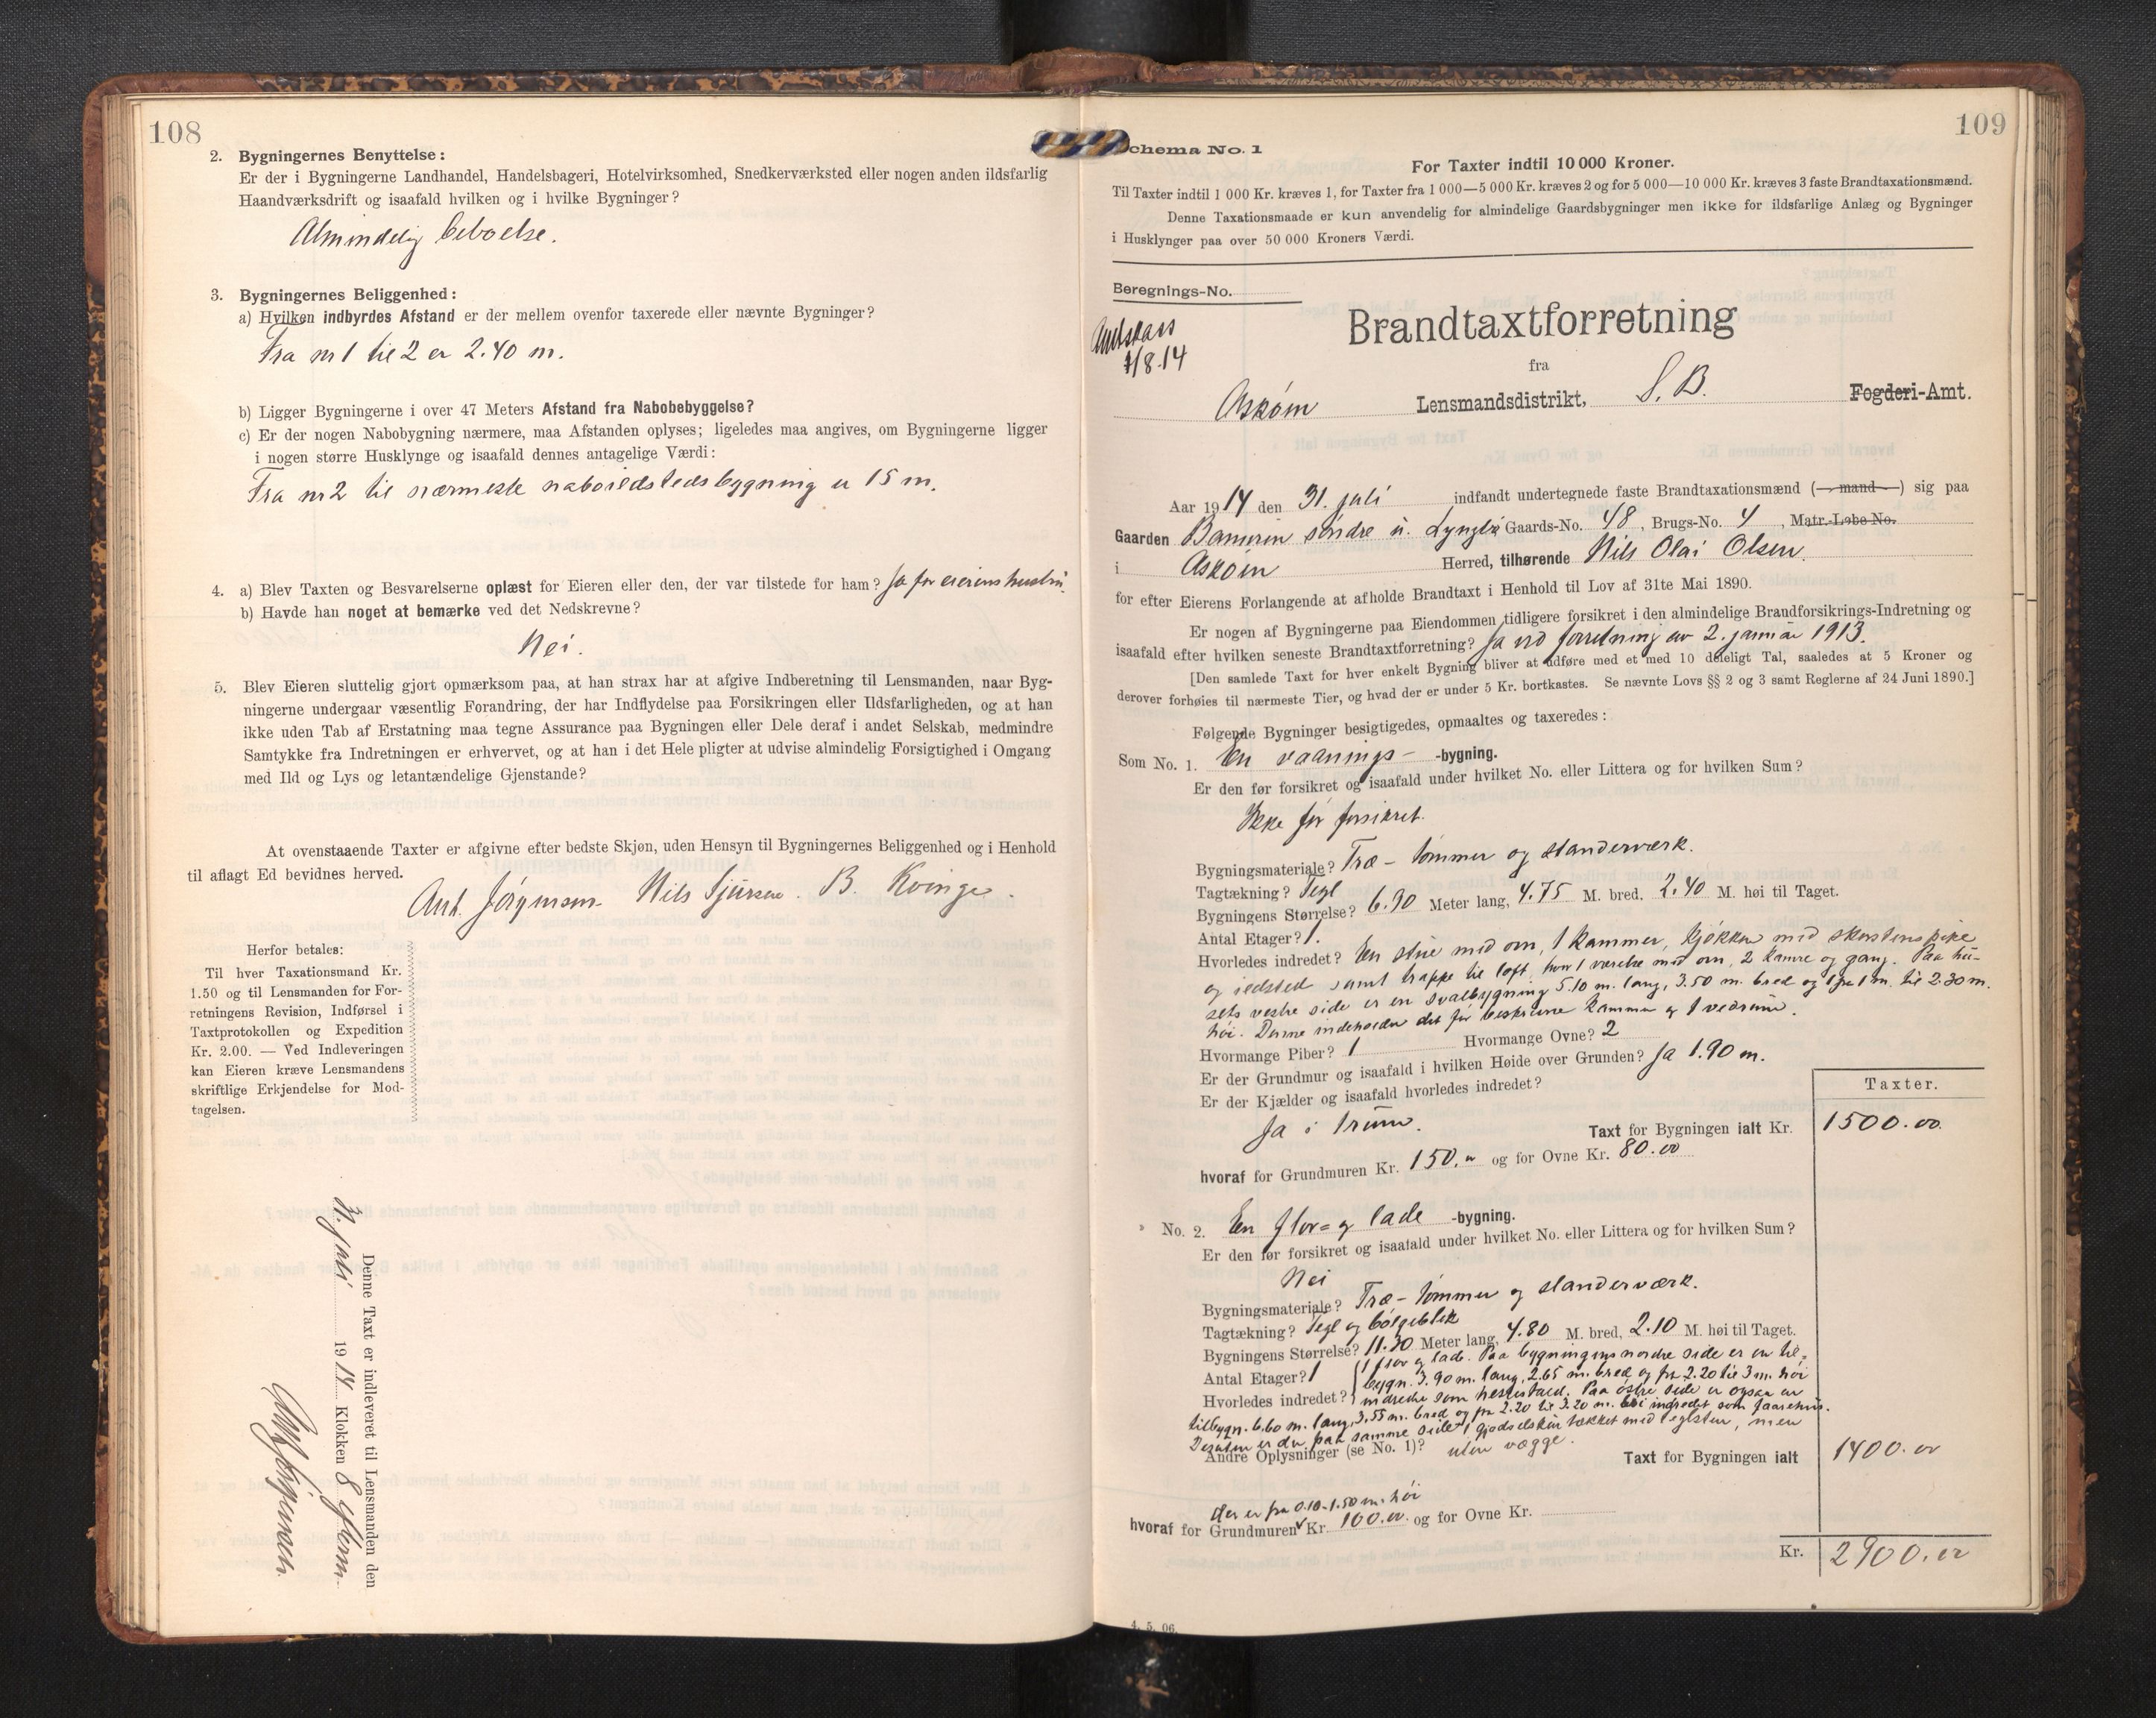 108
2. Bygningernes Benyttelse:
Er der i Bygningerne Landhandel, Handelsbageri, Hotelvirksomhed, Snedkerværksted eller nogen anden ildsfarlig
Haandværksdrift og isaafald hvilken og i hvilke Bygninger?
Almindelig beboelse.
3. Bygningernes Beliggenhed:
a) Hvilken indbyrdes Afstand er der mellem ovenfor taxerede eller nævnte Bygninger?
Fra nr 1 til 2 er 2.40 m.
b) Ligger Bygningerne i over 47 Meters Afstand fra Nabobebyggelse?
c) Er der nogen Nabobygning nærmere, maa Afstanden oplyses; ligeledes maa angives, om Bygningerne ligger
i nogen større Husklynge og isaafald dennes antagelige Værdi:
Fra nr 2 til nærmeste naboildstedsbygning er 15 m.
4. a) Blev Taxten og Besvarelserne oplæst for Eieren eller den, der var tilstede for ham? Ja for eierens hustru.
b) Havde han noget at bemærke ved det Nedskrevne?
Nei.
5. Blev Eieren sluttelig gjort opmærksom paa, at han strax har at afgive Indberetning til Lensmanden, naar Byg-
ningerne undergaar væsentlig Forandring, der har Indflydelse paa Forsikringen eller Ildsfarligheden, og at han
ikke uden Tab af Erstatning maa tegne Assurance paa Bygningen eller Dele deraf i andet Selskab, medmindre
Samtykke fra Indretningen er erhvervet, og at han i det Hele pligter at udvise almindelig Forsigtighed i Omgang
med Ild og Lys og letantændelige Gjenstande?
At ovenstaaende Taxter er afgivne efter bedste Skjøn, uden Hensyn til Bygningernes Beliggenhed og i Henhold
til aflagt Ed bevidnes herved.
Ant. Jørgensen Nils Sjursen. B. Kvinge.
Herfor betales:
Til hver Taxationsmand Kr.
1.50 og til Lensmanden for For-
retningens Revision, Indførsel i
Taxtprotokollen og Expedition
Kr. 2.00. — Ved Indleveringen
kan Eieren kræve Lensmandens
skriftlige Erkjendelse for Mod-
tagelsen.
Denne Taxt er indleveret til Lensmanden den
31. juli 1914 Klokken 8 efterm.
Jørgensen.
109
chema No. 1
For Taxter indtil 10 000 Kroner.
Til Taxter indtil 1 000 Kr. kræves 1, for Taxter fra 1 000—5 000 Kr. kræves 2 og for 5 000—10 000 Kr. kræves 3 faste Brandtaxationsmænd.
Denne Taxationsmaade er kun anvendelig for almindelige Gaardsbygninger men ikke for ildsfarlige Anlæg og Bygninger
i Husklynger paa over 50 000 Kroners Værdi.
Beregnings-No.
Brandtaxtforretning
7/8.14
fra
Askøen Lensmandsdistrikt, S. B. Fogderi-Amt.
Aar 1914 den 31. juli indfandt undertegnede faste Brandtaxationsmænd (— mand —) sig paa
Gaarden søndre Gaards-No. 48, Brugs-No. 4, Matr.-Løbe-No.
i Askøen Herred, tilhørende Nils Olai Olsen
for efter Eierens Forlangende at afholde Brandtaxt i Henhold til Lov af 31te Mai 1890.
Er nogen af Bygningerne paa Eiendommen tidligere forsikret i den almindelige Brandforsikrings-Indretning og
isaafald efter hvilken seneste Brandtaxtforretning? Ja ved forretning av 2. januar 1913.
[Den samlede Taxt for hver enkelt Bygning bliver at udføre med et med 10 deleligt Tal, saaledes at 5 Kroner og
derover forhøies til nærmeste Tier, og hvad der er under 5 Kr. bortkastes. Se nævnte Lovs §§ 2 og 3 samt Reglerne af 24 Juni 1890.]
Følgende Bygninger besigtigedes, opmaaltes og taxeredes:
Som No. 1. En vaanings- -bygning.
Er den før forsikret og isaafald under hvilket No. eller Littera og for hvilken Sum?
Ikke før forsikret.
Bygningsmateriale? Træ - tømmer og standerværk.
Tagtækning? Tegl
Bygningens Størrelse? 6.90 Meter lang, 4.75 M. bred, 2.40 M. høi til Taget.
Antal Etager? 1.
Hvorledes indredet? En stue med ovn, 1 kammer, kjøkken med skorstenspipe
og ildsted samt trappe til loft, hvor 1 værelse med ovn, 2 kamre og gang. Paa hu-
sets vestre side er en svalbygning 5.10 m. lang, 3.50 m. bred og fra 1 m. til 2.30 m.
høi. Denne indeholder det før beskrevne kammer og 1 vedrum.
Hvormange Piber? 1 Hvormange Ovne? 2
Er der Grundmur og isaafald i hvilken Høide over Grunden? Ja 1.90 m.
Er der Kjælder og isaafald hvorledes indredet?
Ja i trium.
Taxter.
Taxt for Bygningen ialt Kr. 1500.00
hvoraf for Grundmuren Kr. 150.00 og for Ovne Kr. 80.00
No. 2. En flor- og lade -bygning.
Er den før forsikret og isaafald under hvilket No. eller Littera og for hvilken Sum?
Nei
Bygningsmateriale? Træ - tømmer og standerværk.
Tagtækning? Tegl og bølgeblik
Bygningens Størrelse? 11.30 Meter lang, 4.80 M. bred, 2.10 M. høi til Taget.
Antal Etager? 1 1 flor og lade. Paa bygningens nordre side er en til-
Hvorledes indredet? bygn. 3.90 m. lang, 2.65 m. bred og fra 2.20 til 3 m. høi
indredet som hestestald. Paa østre side er ogsaa en
tilbygn. 6.60 m. lang, 3.55 m. bred og fra 2.20 til 3.20 m. høi indredet som faarehus.
Desuten er der paa samme side 1 gjødselskur tækket med teglsten, men
Andre Oplysninger (se No. 1)? uten vægge.
Taxt for Bygningen ialt 1400.00
der er fra 0.10-1.50 m. høi
hvoraf for Grundmuren Kr. 100.00 og for Ovne Kr.
Kr. 2900.00
4. 5. 06.